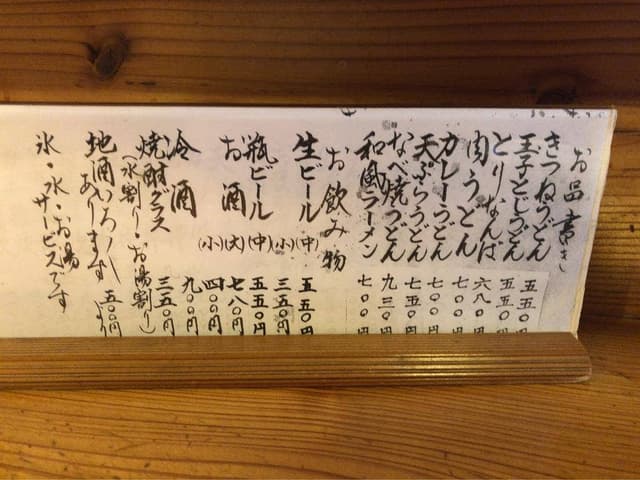 お品書き
きつねうどん 五五〇円
玉子とじうどん 五五〇円
とりなんば 六八〇円
肉うどん 七〇〇円
カレーうどん 七〇〇円
天ぷらうどん 七五〇円
なべ焼うどん 九三〇円
和風ラーメン 七〇〇円
お飲み物
生ビール(中) 五五〇円
(小) 三五〇円
瓶ビール(中) 五五〇円
お酒(大) 七八〇円
(小) 四〇〇円
冷酒 九〇〇円
焼酎グラス 三五〇円
(水割り・お湯割り)
地酒いろいろ
あります 五〇〇円より
氷・水・お湯
サービスです